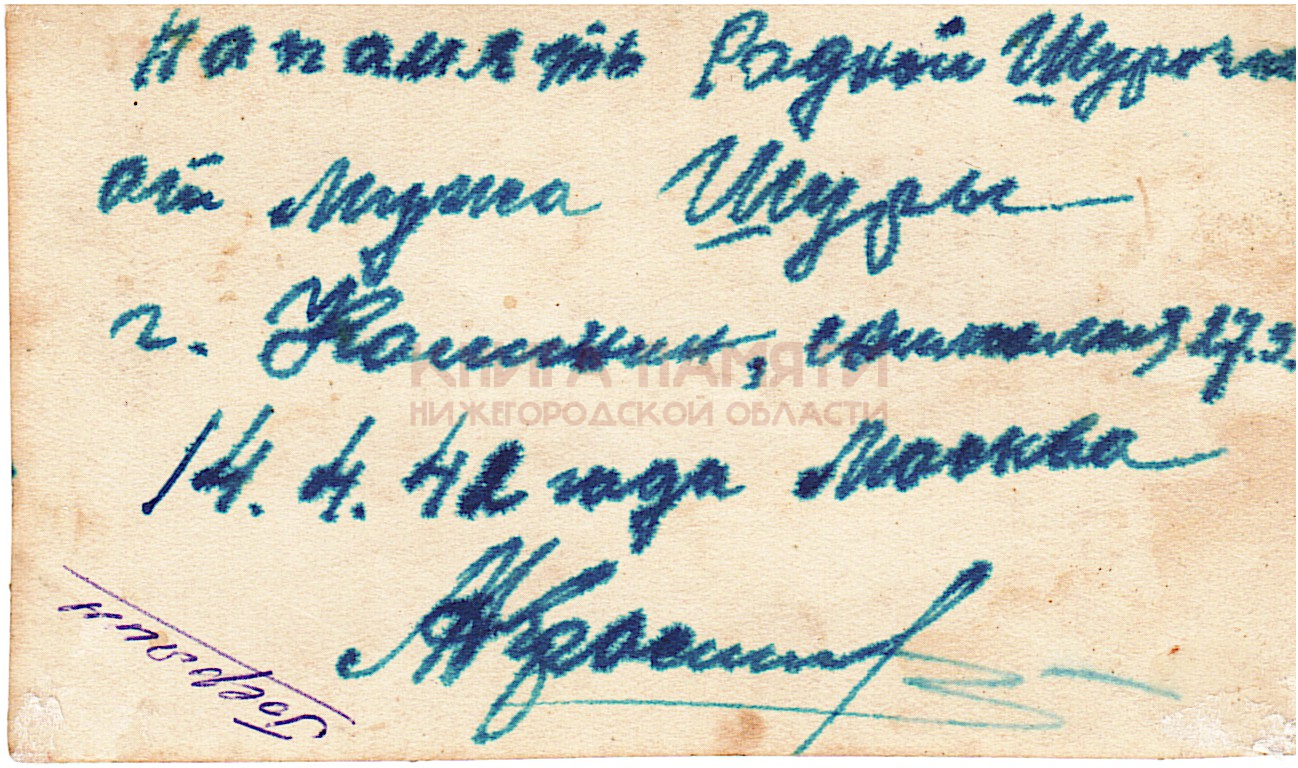 На память Родной Шурочк
от Мужа Шуры
г. Калинин, снимался 27.3.
КНИГА ПАМЯТИ
НИЖЕГОРОДСКОЙ ОБЛАСТИ
14.4.42 года Москва